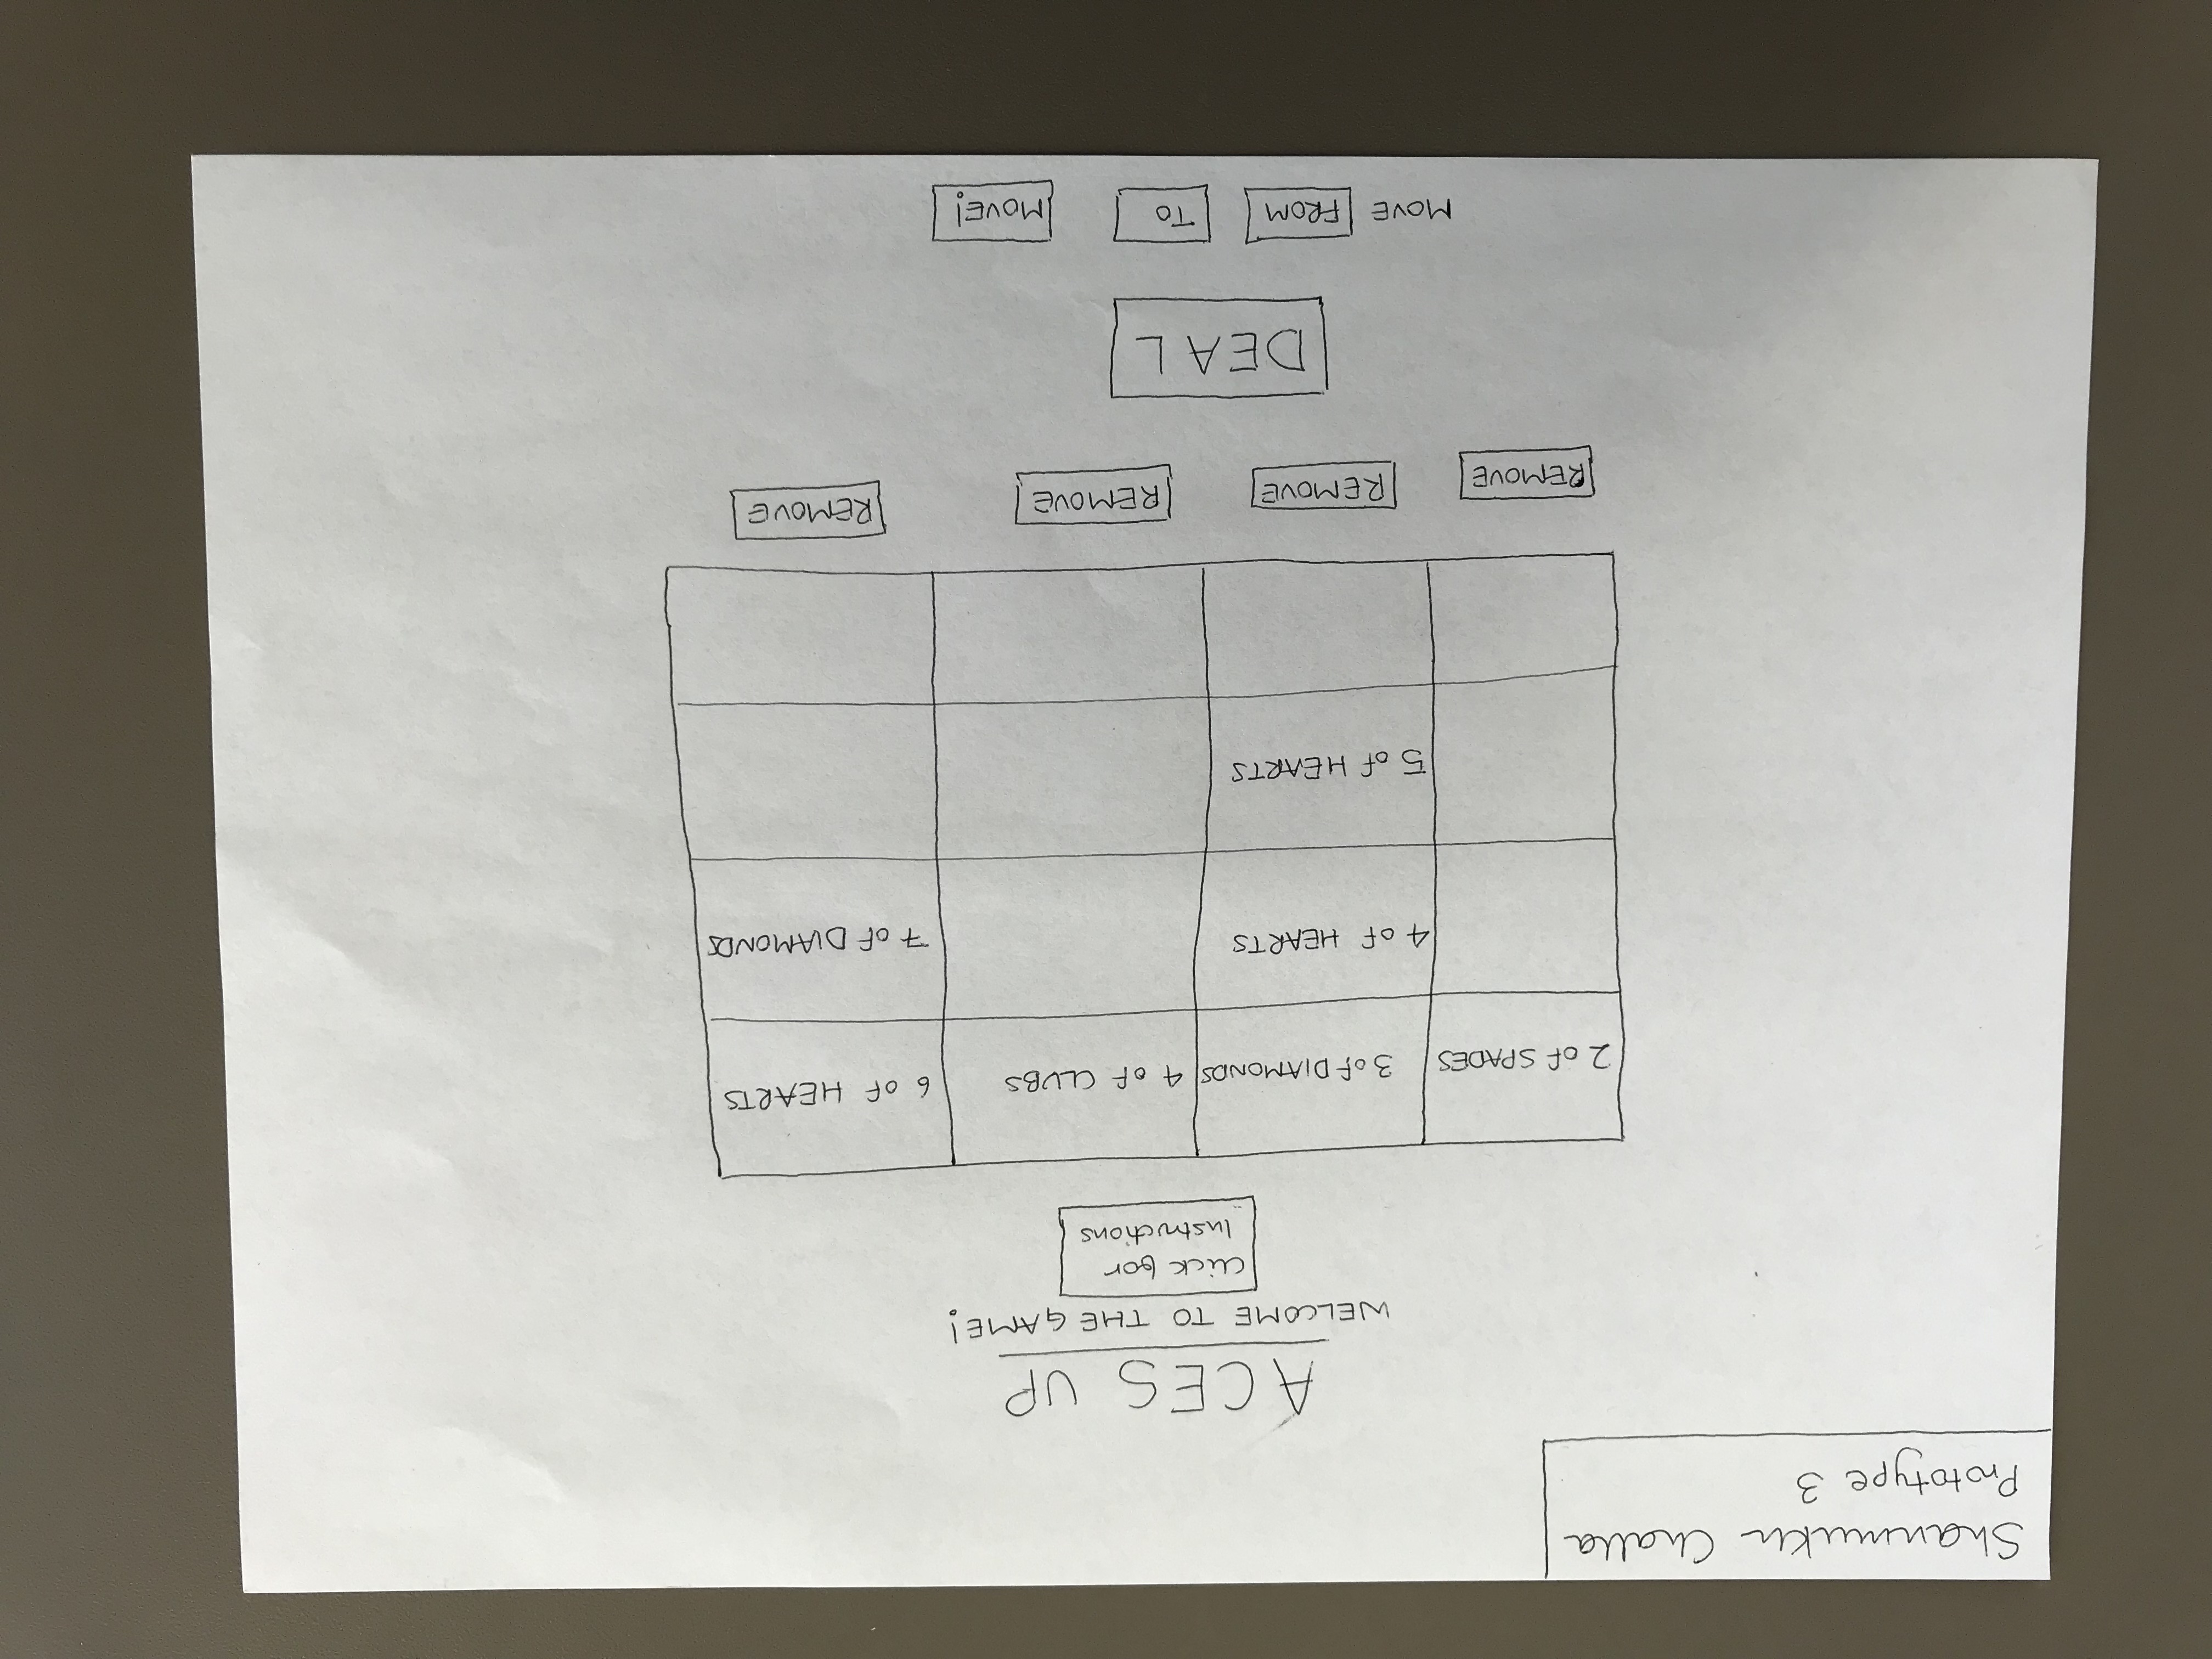 Shanmukh Challa
Prototype 3
ACES UP
WELCOME TO THE GAME!
Click for
Instructions
2 of SPADES 3 of DIAMONDS 4 of CLUBS 6 OF HEARTS
4 of HEARTS 7 OF DIAMONDS
5 of HEARTS
REMOVE REMOVE REMOVE REMOVE
DEAL
MOVE FROM TO MOVE!